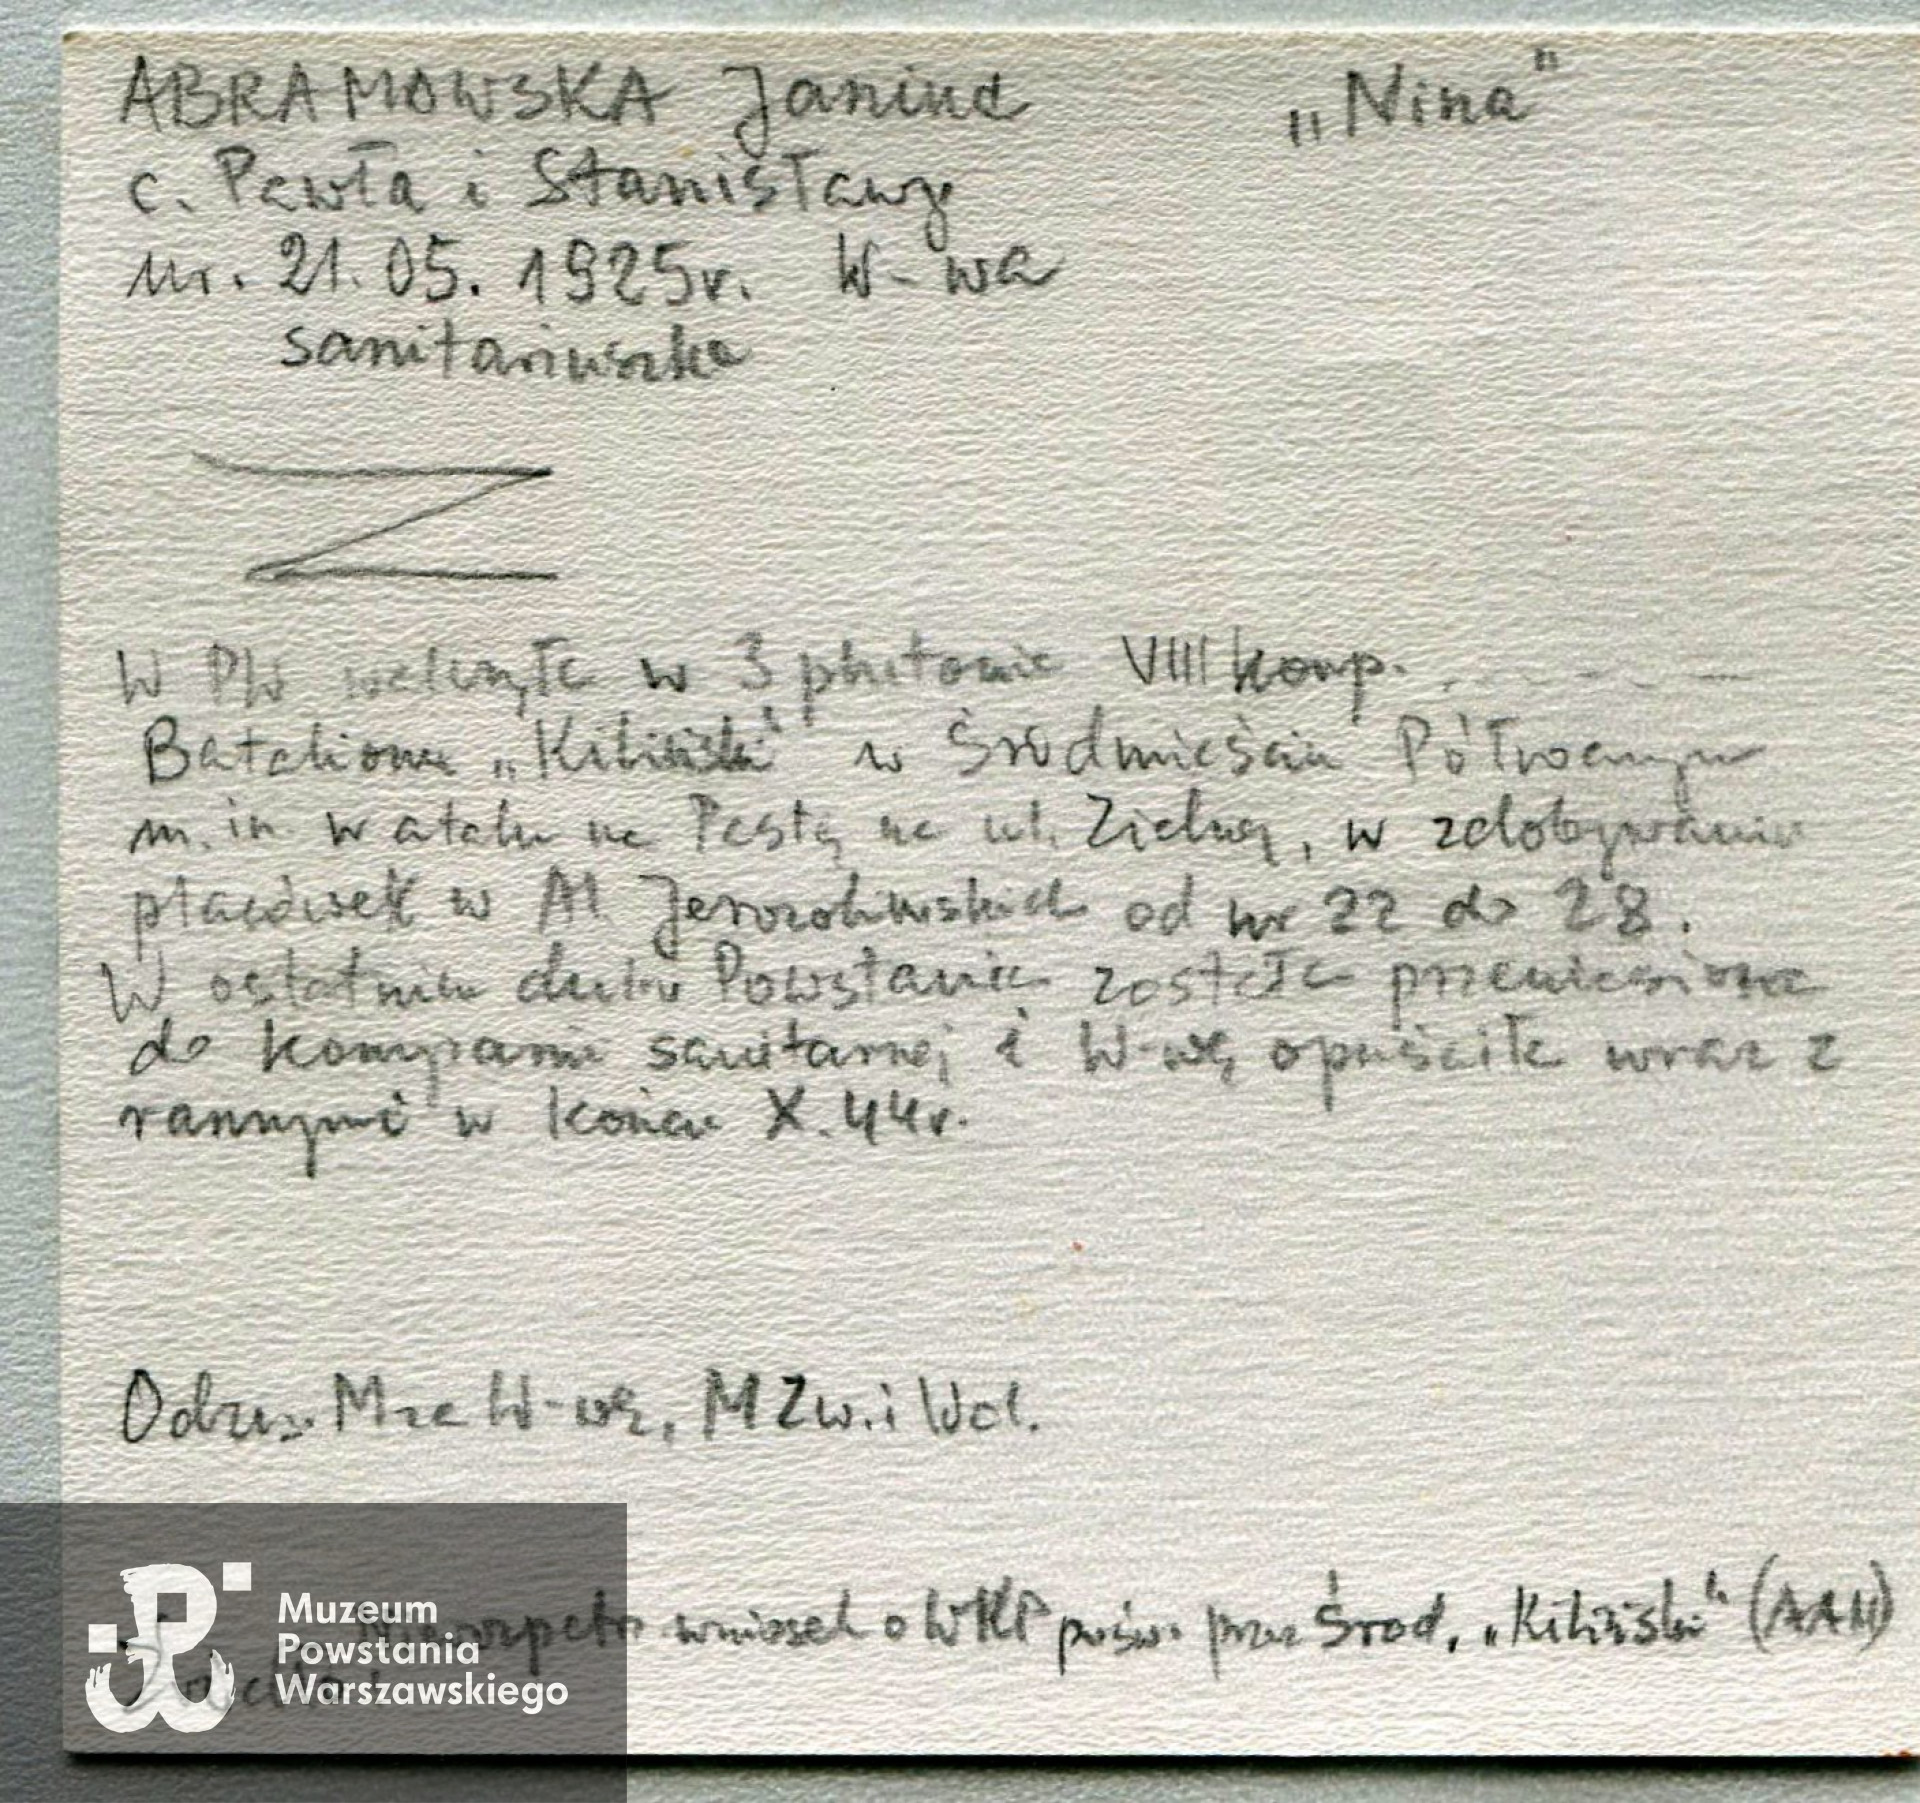 ABRAMOWSKA Janina „Nina"
c. Pawła i Stanisławy
ur. 21.05.1925r. W-wa
sanitariuszka
Z
W PW walczyła w 3 plutonie VIII komp.
Batalionu „Kiliński" w Śródmieściu Północnym
m.in. w ataku na Pastę na ul. Zielną, w zdobywaniu
placówek w Al. Jerozolimskich od nr 22 do 28.
W ostatnim dniu Powstania została przeniesiona
do kompanii sanitarnej i W-wę opuściła wraz z
rannymi w końcu X.44r.
Odzn. M za W-wę, M Zw. i Wol.
wniosek o WKP pośw. przez Środ. „Kiliński" (AAN)
Muzeum
Powstania
Warszawskiego